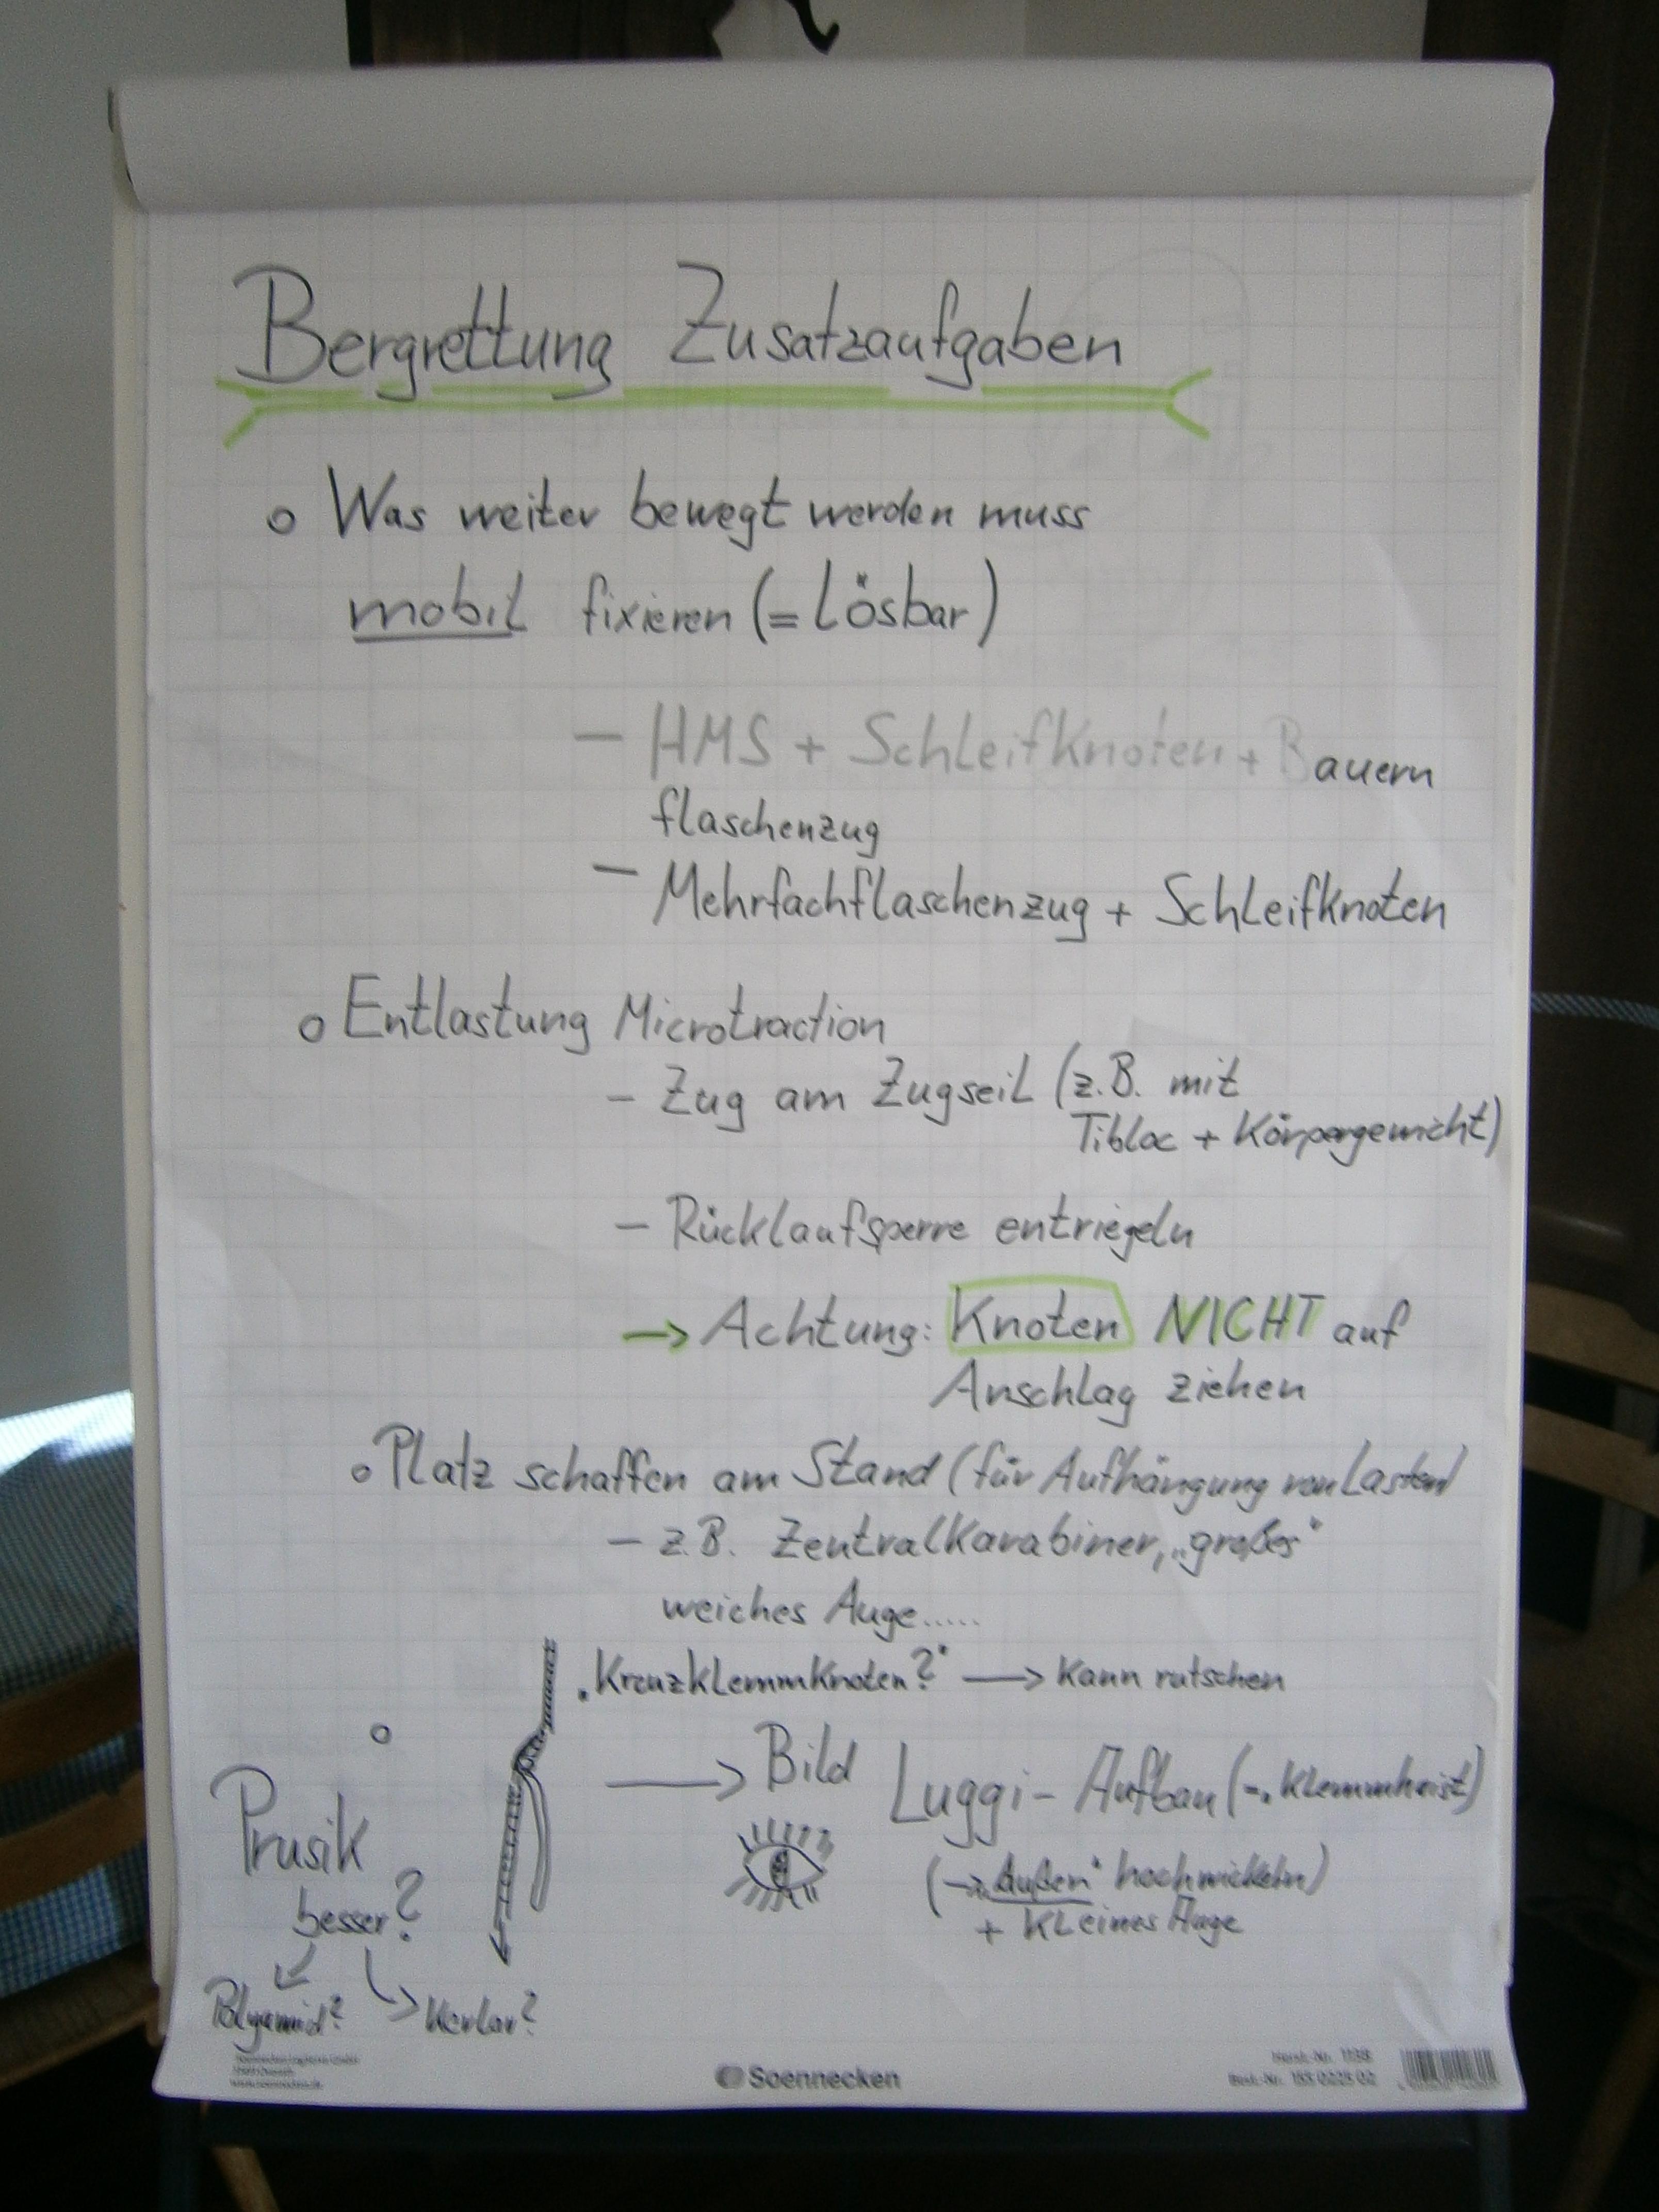 Bergrettung Zusatzaufgaben
o Was weiter bewegt werden muss
mobil fixieren (= Lösbar)
— HMS + Schleifknoten + Bauern
flaschenzug
— Mehrfachflaschenzug + Schleifknoten
o Entlastung Microtraction
- Zug am Zugseil (z.B. mit
Tibloc + Körpergewicht)
- Rücklaufsperre entriegeln
→ Achtung: Knoten NICHT auf
Anschlag ziehen
o Platz schaffen am Stand (für Aufhängung von Lasten)
- z.B. Zentralkarabiner, „großes"
weiches Auge.....
„Kreuzklemmknoten?" → kann rutschen
o
→ Bild Luggi-Aufbau (=„Klemmheist)
(→ „Außen" hochwickeln)
+ kleines Auge
Prusik
besser?
Polyamid? → Kevlar?
Soennecken
Herst.-Nr. 1138
Best.-Nr. 155 0225 02